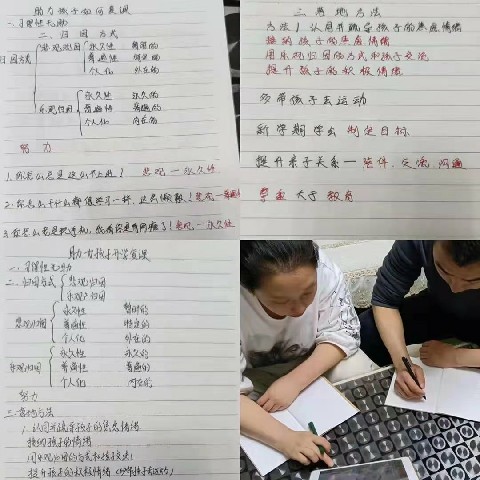 助力孩子如何复课
一、习得性无助
二、归因方式
归因方式
悲观归因
永久性 暂时的
普遍性 特定的
个人化 外在的
乐观归因
永久性 永久的
普遍性 普遍的
个人化 内在的
努力
1.你怎么总是这么不上进！悲观—永久性
2.你怎么干什么都像你爸一样，这么懒散！悲观—普遍性
3.你怎么老是玩手机，
！悲观—永久性
三、落地方法
方法1.认同并疏导孩子的焦虑情绪
接纳孩子的焦虑情绪
用乐观归因的方式和孩子交流
提升孩子的积极情绪
多带孩子去运动
新学期学会制定目标
提升亲子关系—陪伴、交流、沟通
大于教育
助力孩子开学复课
一、习得性无助
二、归因方式
悲观归因
乐观归因
悲观归因
永久性 暂时的
普遍性 特定的
个人化 外在的
乐观归因
永久性 永久的
普遍性 普遍的
个人化 内在的
努力
三、落地方法
1.认同并疏导孩子的焦虑情绪
接纳孩子的情绪
用乐观归因的方式和孩子交流
提升孩子的积极情绪